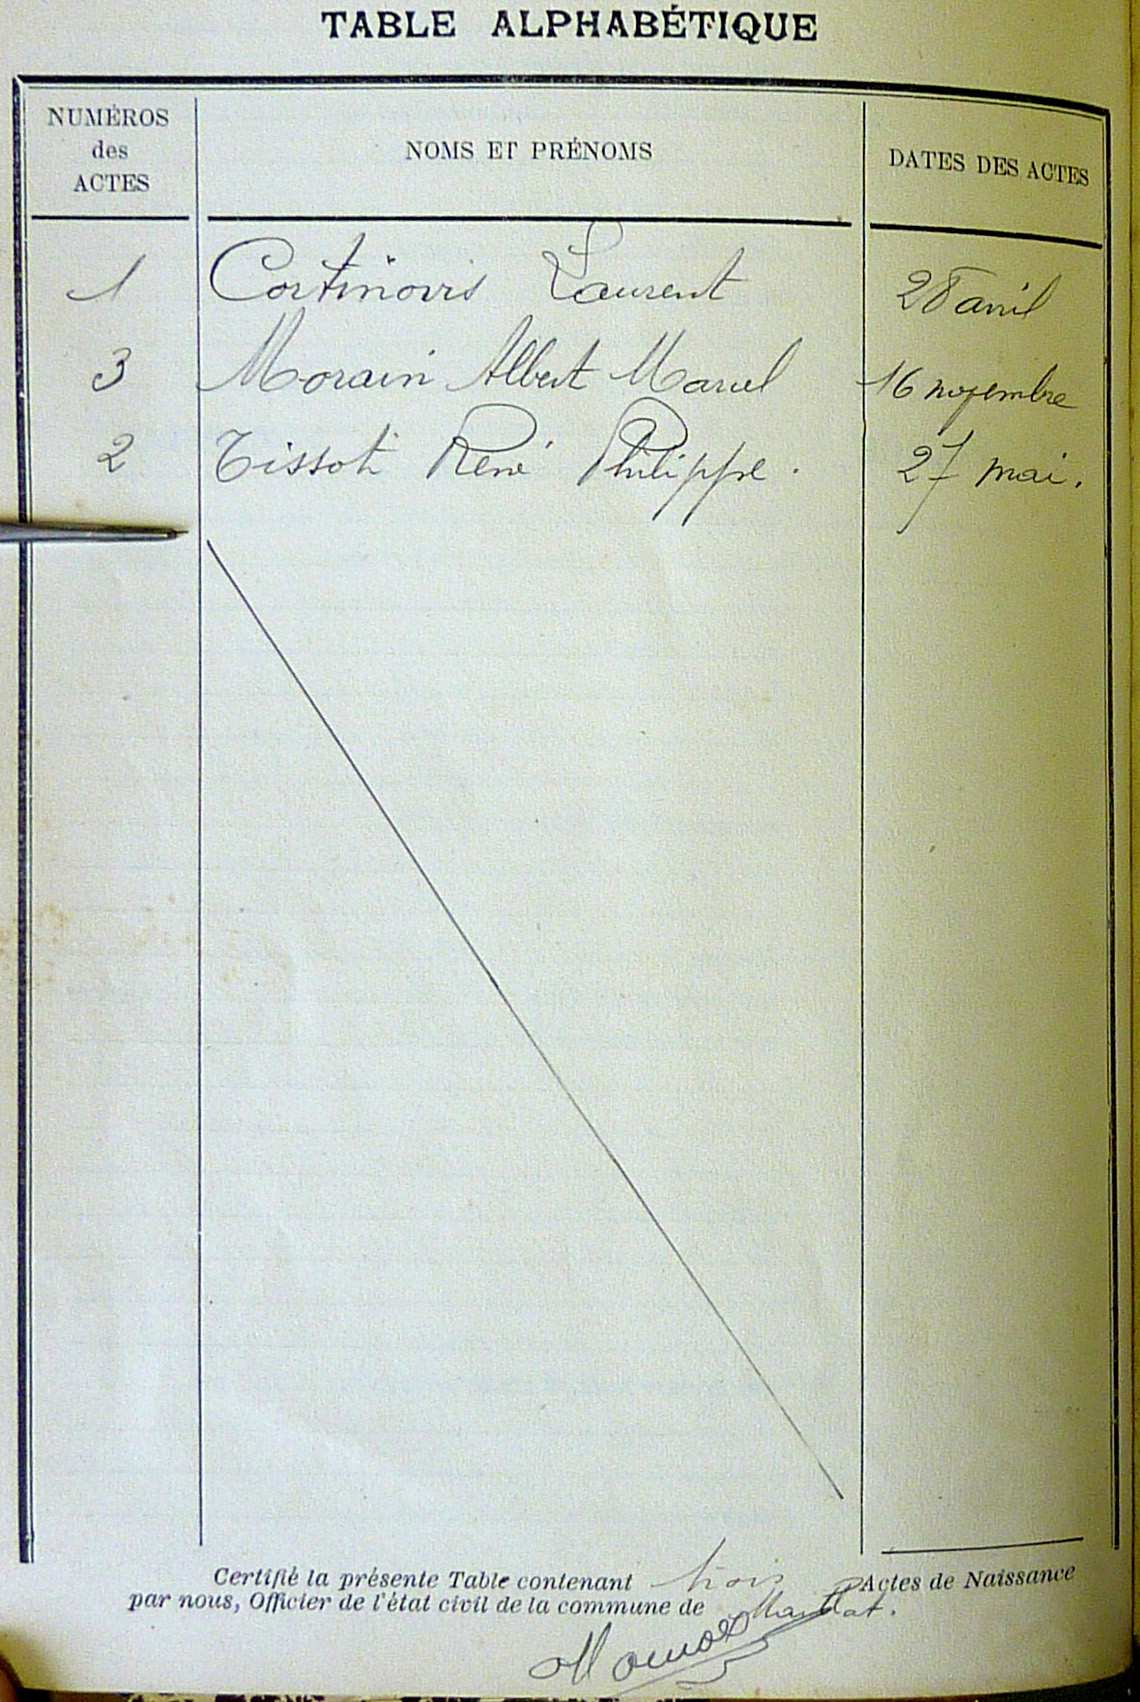 TABLE ALPHABÉTIQUE
NUMÉROS des ACTES NOMS ET PRÉNOMS DATES DES ACTES
1 Cortinovis Laurent 28 avril
3 Morain Albert Marcel 16 novembre
2 Tissot René Philippe. 27 mai.
Certifié la présente Table contenant trois Actes de Naissance
par nous, Officier de l'état civil de la commune de